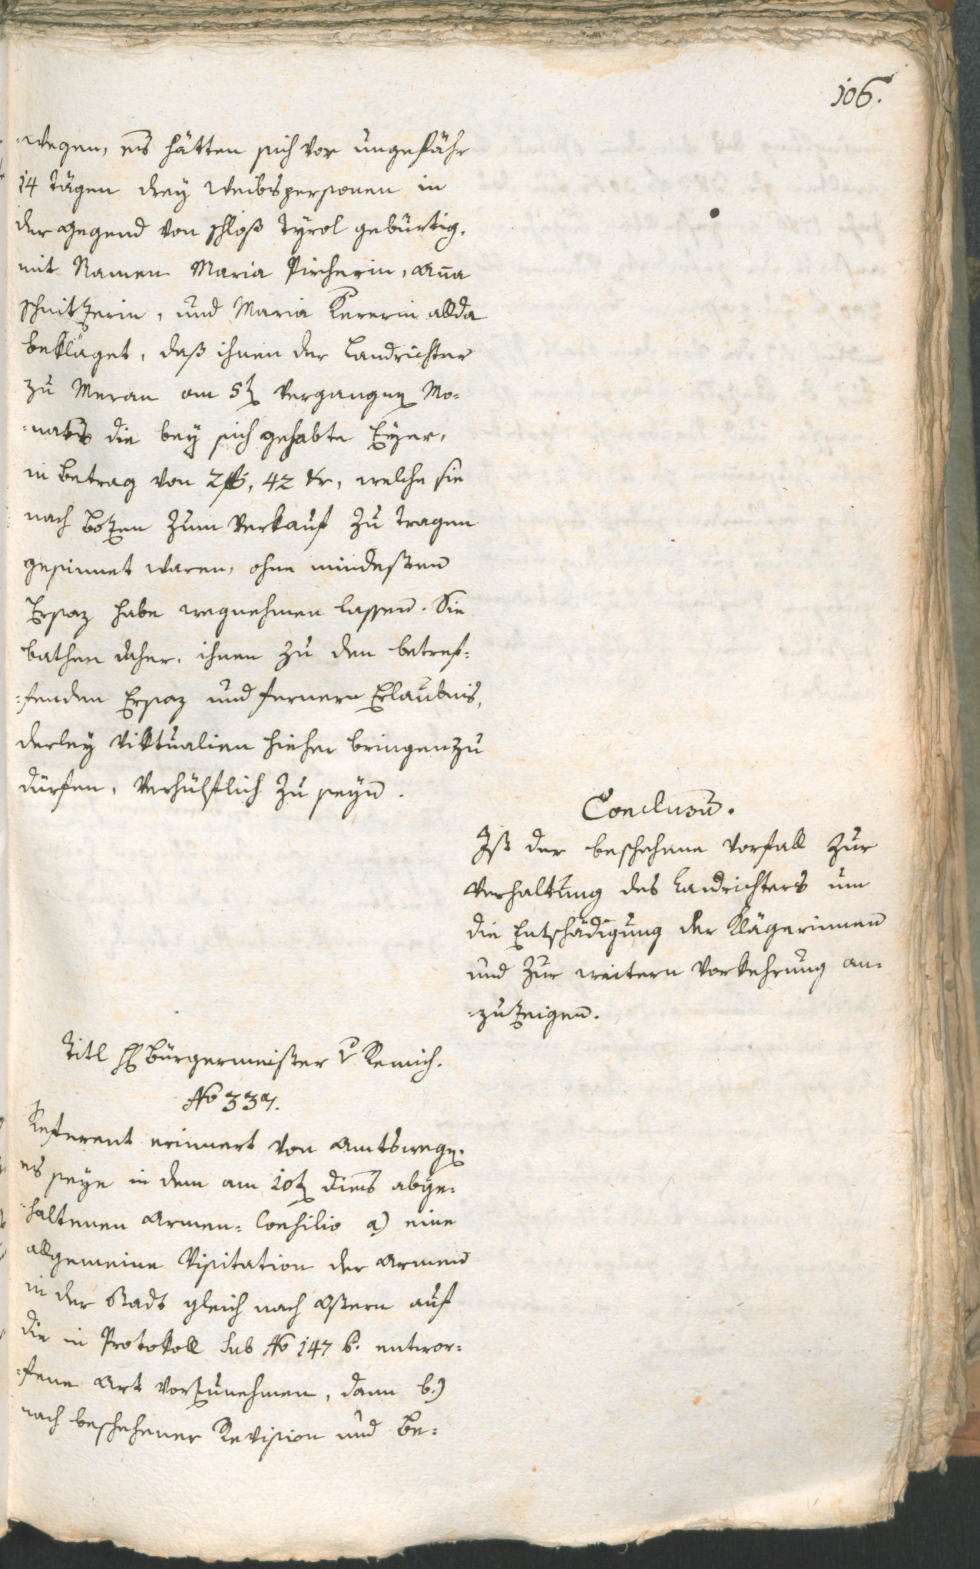 106.
wegen, es hätten sich vor ungefähr
14 tägen drey weibspersonen in
der gegend von schloß Tyrol gebürtig,
mit Namen Maria Pircherin, Aña
Schnitzerin, und Maria Kererin allda
beklaget, daß ihnen der Landrichter
zu Meran am 5t vergangen Mo¬
¬nats die bey sich gehabte Eyer,
in Betrag von 2 f, 42 kr, welche sie
nach Bozen zum verkauf zu tragen
gesinnet waren, ohne mindesten
Ersaz habe wegnehmen lassen. Sie
bathen daher, ihnen zu den betref¬
¬fenden Ersaz und fernere Erlaubnis,
derley Viktualien hieher bringen zu
dürfen, verhülflich zu seyn.
Conclusum.
Ist der beschehene Vorfall zur
verhaltung des Landrichters um
die Entschädigung der Klägerinnen
und zur weitern Vorkehrung an¬
¬zuzeigen.
Titl H Bürgermeister v Remich.
No 337.
Referent erinnert von Amtswegen,
es seye in dem am 10t dies abge¬
¬haltenen Armen-Consilio a) eine
allgemeine Visitation der Armen
in der Stadt gleich nach Ostern auf
die in Protokoll sub No 147 b. entwor¬
¬fene Art vorzunehmen, dann b.)
nach beschehener Revision und Be¬